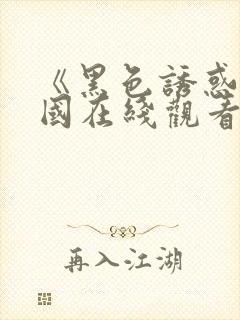 《黑色誘惑
國在綫觀看
再入江湖